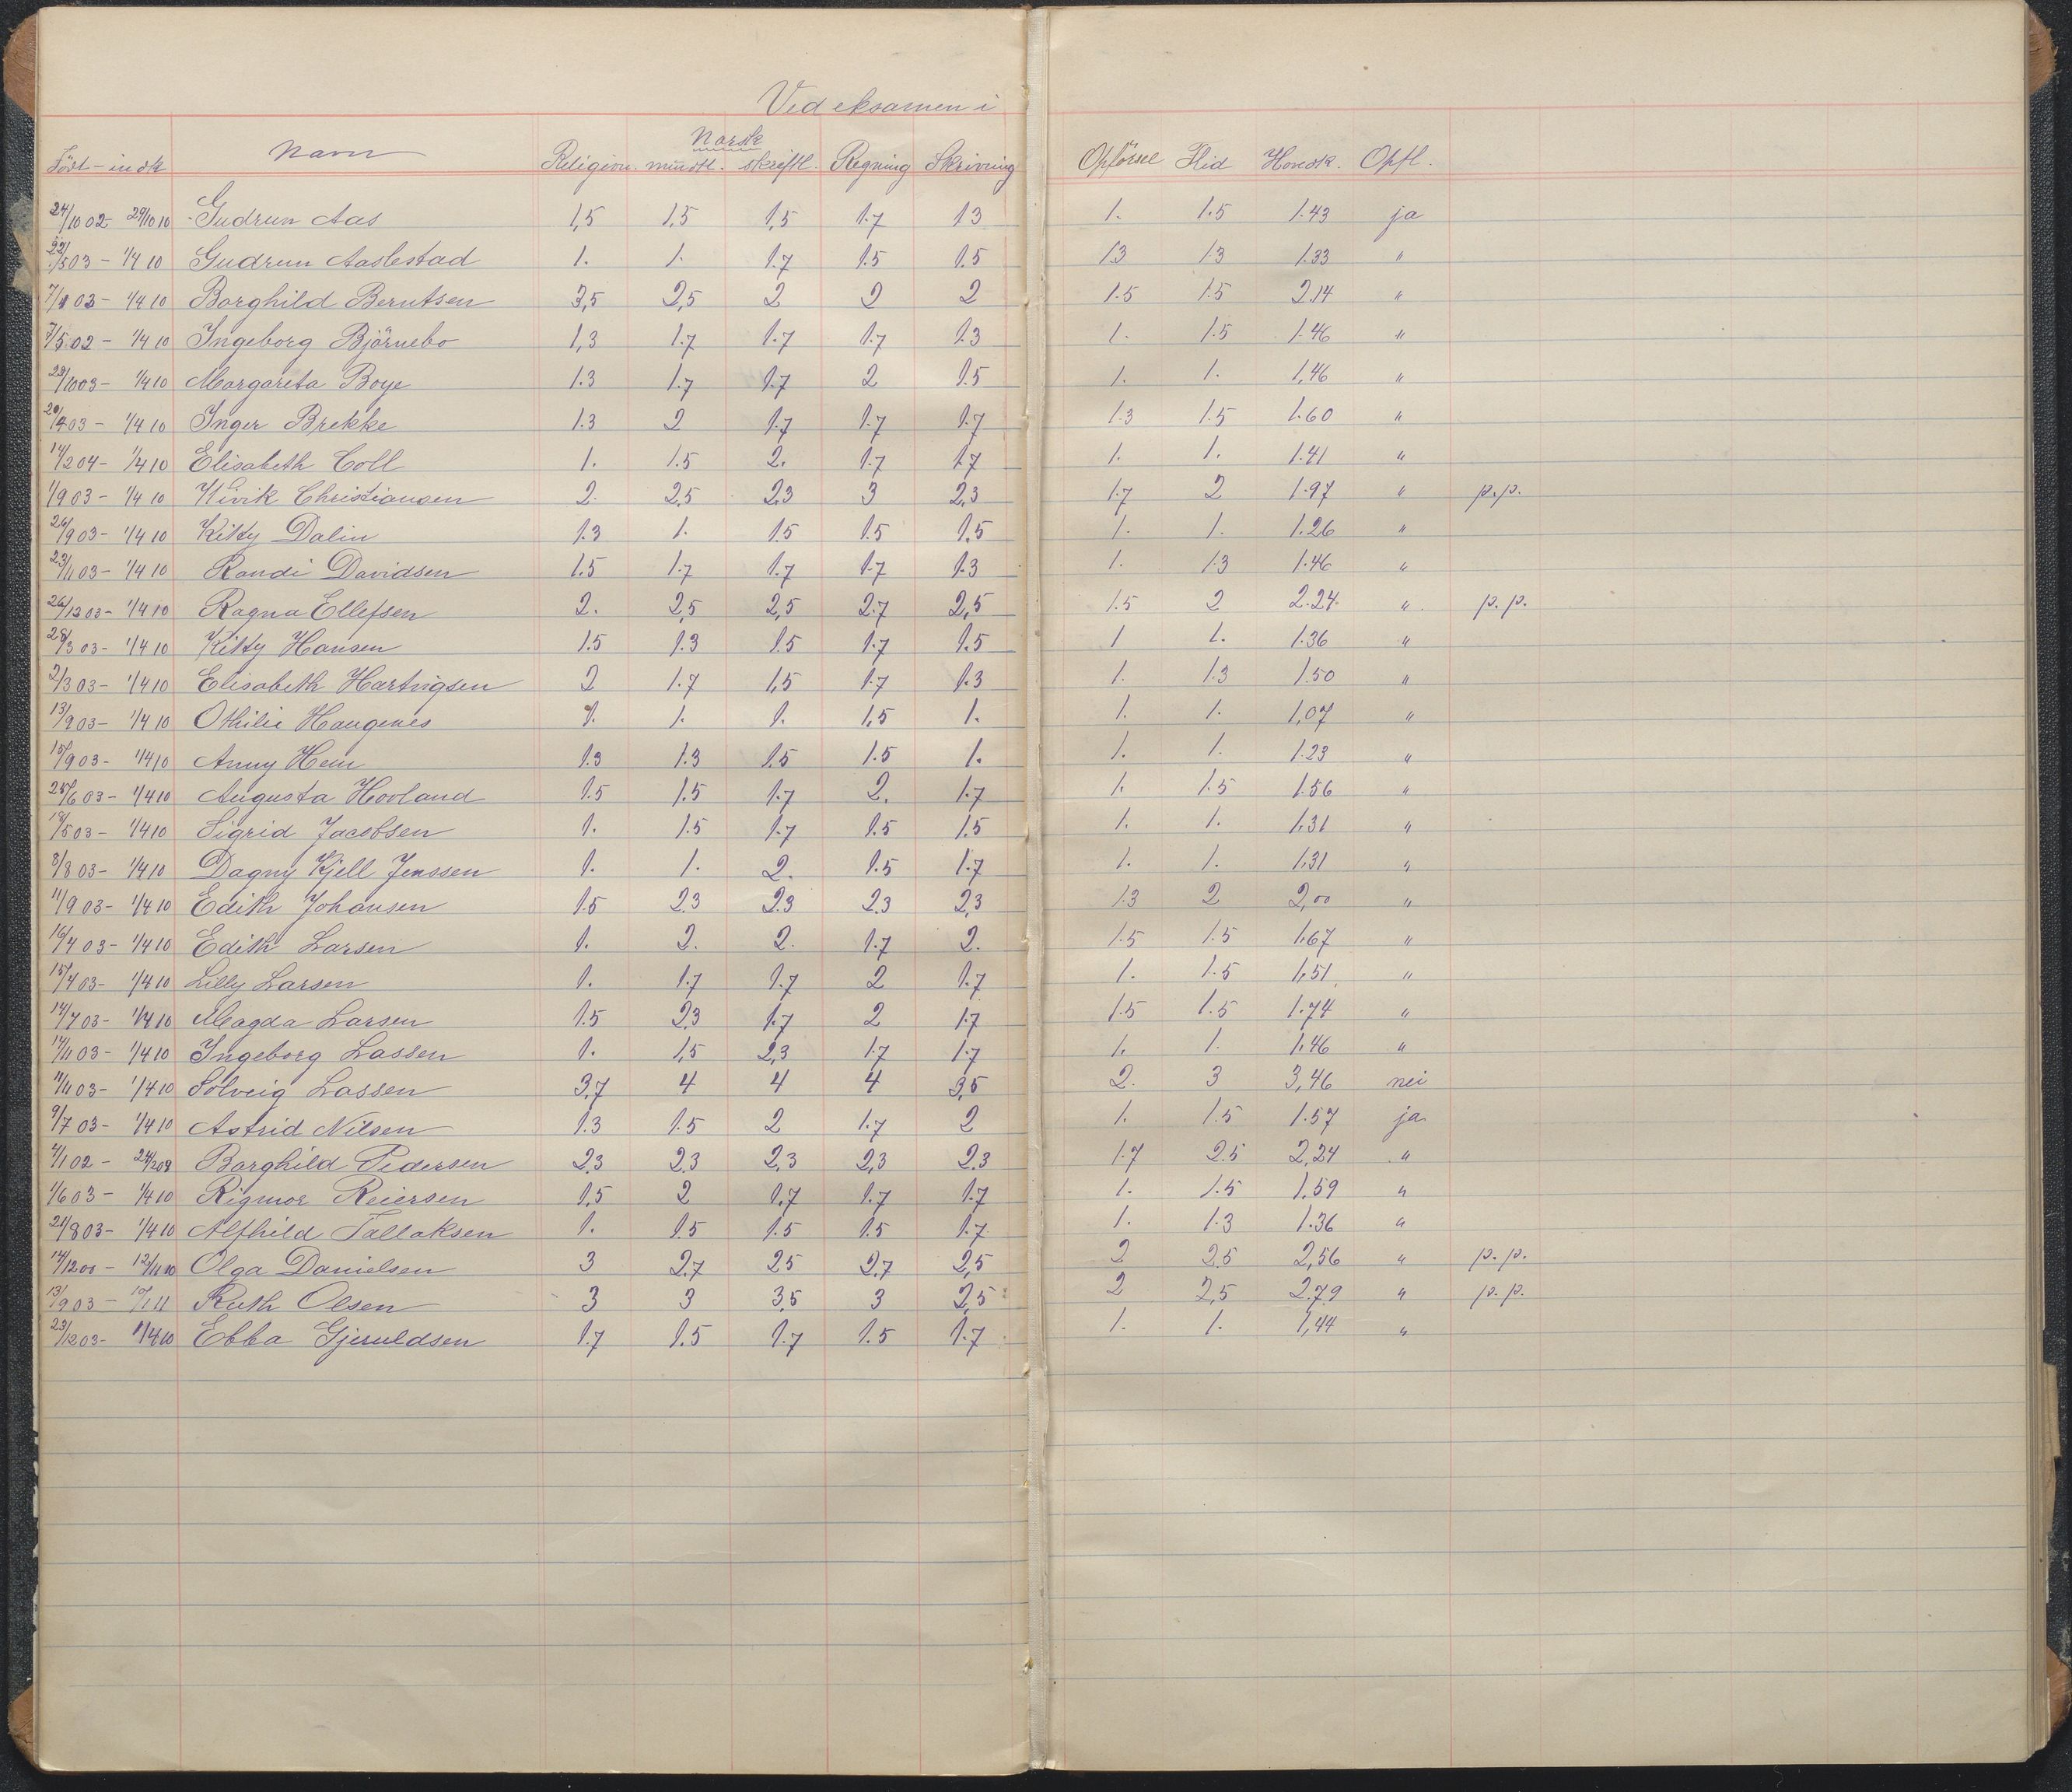 Ved eksamen i
Norsk
Født - indk Navn Religion. mundtl. skriftl. Regning Skrivning Opførsel Flid Hovedk. Opfl.
24/10 02 - 29/10 10 Gudrun Aas 1,5 1,5 1,5 1.7 1.3 1. 1.5 1.43 ja
22/5 03 - 1/4 10 Gudrun Aaslestad 1. 1. 1.7 1.5 1.5 1.3 1.3 1.33 "
7/1 03 - 1/4 10 Borghild Berntsen 3,5 2,5 2 2 2 1.5 1.5 2.14 "
7/5 02 - 1/4 10 Ingeborg Björnebo 1,3 1.7 1.7 1.7 1.3 1. 1.5 1.46 "
29/10 03 - 1/4 10 Margareta Boye 1.3 1.7 1.7 2 1.5 1. 1. 1,46 "
20/4 03 - 1/4 10 Inger Brekke 1.3 2 1.7 1.7 1.7 1.3 1.5 1.60 "
14/2 04 - 1/4 10 Elisabeth Coll 1. 1.5 2. 1.7 1.7 1. 1. 1.41 "
1/9 03 - 1/4 10 Christiansen 2. 2,5 2,3 3 2,3 1.7 2 1.97 " p.p.
26/9 03 - 1/4 10 Kitty Dalin 1.3 1. 1.5 1.5 1.5 1. 1. 1.26 "
23/11 03 - 1/4 10 Randi Davidsen 1.5 1.7 1.7 1.7 1.3 1. 1.3 1.46 "
26/12 03 - 1/4 10 Ragna Ellefsen 2. 2,5 2,5 2.7 2,5 1.5 2 2.24. " p.p.
28/3 03 - 1/4 10 Kitty Hansen 1.5 1.3 1.5 1.7 1.5 1 1. 1.36 "
2/3 03 - 1/4 10 Elisabeth Hartvigsen 2 1.7 1,5 1.7 1.3 1. 1.3 1.50 "
13/9 03 - 1/4 10 Othilie Haugenes 1. 1. 1. 1,5 1. 1. 1. 1,07 "
15/9 03 - 1/4 10 Anny Hem 1.3 1.3 1.5 1.5 1. 1. 1. 1.23 "
25/6 03 - 1/4 10 Augusta Hovland 1.5 1.5 1.7 2. 1.7 1. 1.5 1.56 "
18/5 03 - 1/4 10 Sigrid Jacobsen 1. 1.5 1.7 1.5 1.5 1. 1. 1.31 "
8/8 03 - 1/4 10 Dagny Kjell Jenssen 1. 1. 2. 1.5 1.7 1. 1. 1.31 "
11/9 03 - 1/4 10 Edith Johansen 1.5 2.3 2.3 2.3 2,3 1.3 2 2,00 "
16/4 03 - 1/4 10 Edith Larsen 1. 2. 2. 1.7 2. 1.5 1.5 1.67 "
15/4 03 - 1/4 10 Lilly Larsen 1. 1.7 1.7 2 1.7 1. 1.5 1.51 "
14/7 03 - 1/4 10 Magda Larsen 1.5 2.3 1.7 2 1.7 1.5 1.5 1.74 "
14/11 03 - 1/4 10 Ingeborg Lassen 1. 1,5 2,3 1.7 1.7 1. 1. 1.46 "
11/11 03 - 1/4 10 Solveig Lassen 3,7 4 4 4 3,5 2. 3 3,46 nei
9/7 03 - 1/4 10 Astrid Nilsen 1.3 1.5 2 1.7 2 1. 1.5 1.57 ja
4/1 02 - 24/2 09 Borghild Pedersen 2,3 2,3 2,3 2,3 2.3 1.7 2.5 2,24 "
1/6 03 - 1/4 10 Rigmor Reiersen 1,5 2 1.7 1.7 1.7 1. 1.5 1.59 "
21/8 03 - 1/4 10 Alfhild Tallaksen 1. 1.5 1.5 1.5 1.7 1. 1.3 1.36 "
14/12 00 - 12/11 10 Olga Danielsen 3 2.7 2.5 2.7 2,5 2 2,5 2,56 " p.p.
13/9 03 - 10/1 11 Ruth Olsen 3 3 3,5 3 2,5 2 2,5 2.79 " p.p.
23/12 03 - 1/4 10 Ebba Gjeruldsen 1.7 1.5 1.7 1.5 1.7 1. 1. 1,44 "